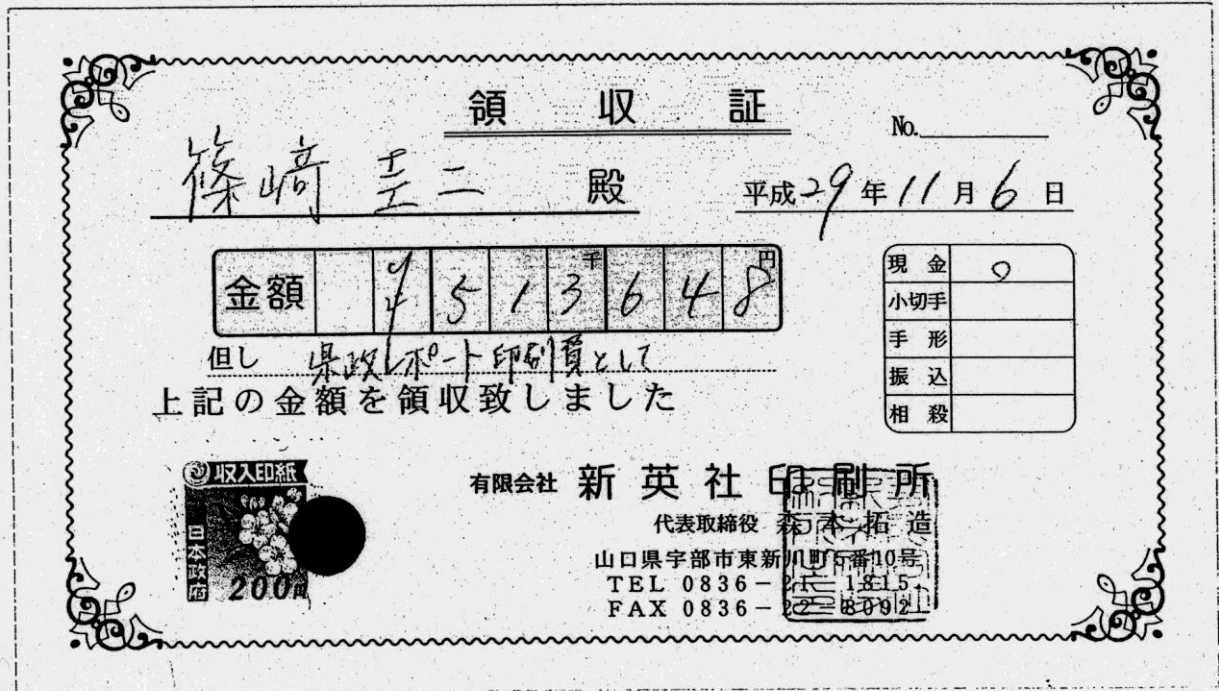 領収証
No.
篠﨑圭二 殿
平成29年11月6日
金額 ¥513648
千 円
但し 県政レポート印刷費として
上記の金額を領収致しました
現金 ○
小切手
手形
振込
相殺
収入印紙
日本政府
200円
有限会社 新英社印刷所
代表取締役 森本拓造
山口県宇部市東新川町5番10号
TEL 0836-21-1815
FAX 0836-22-8092